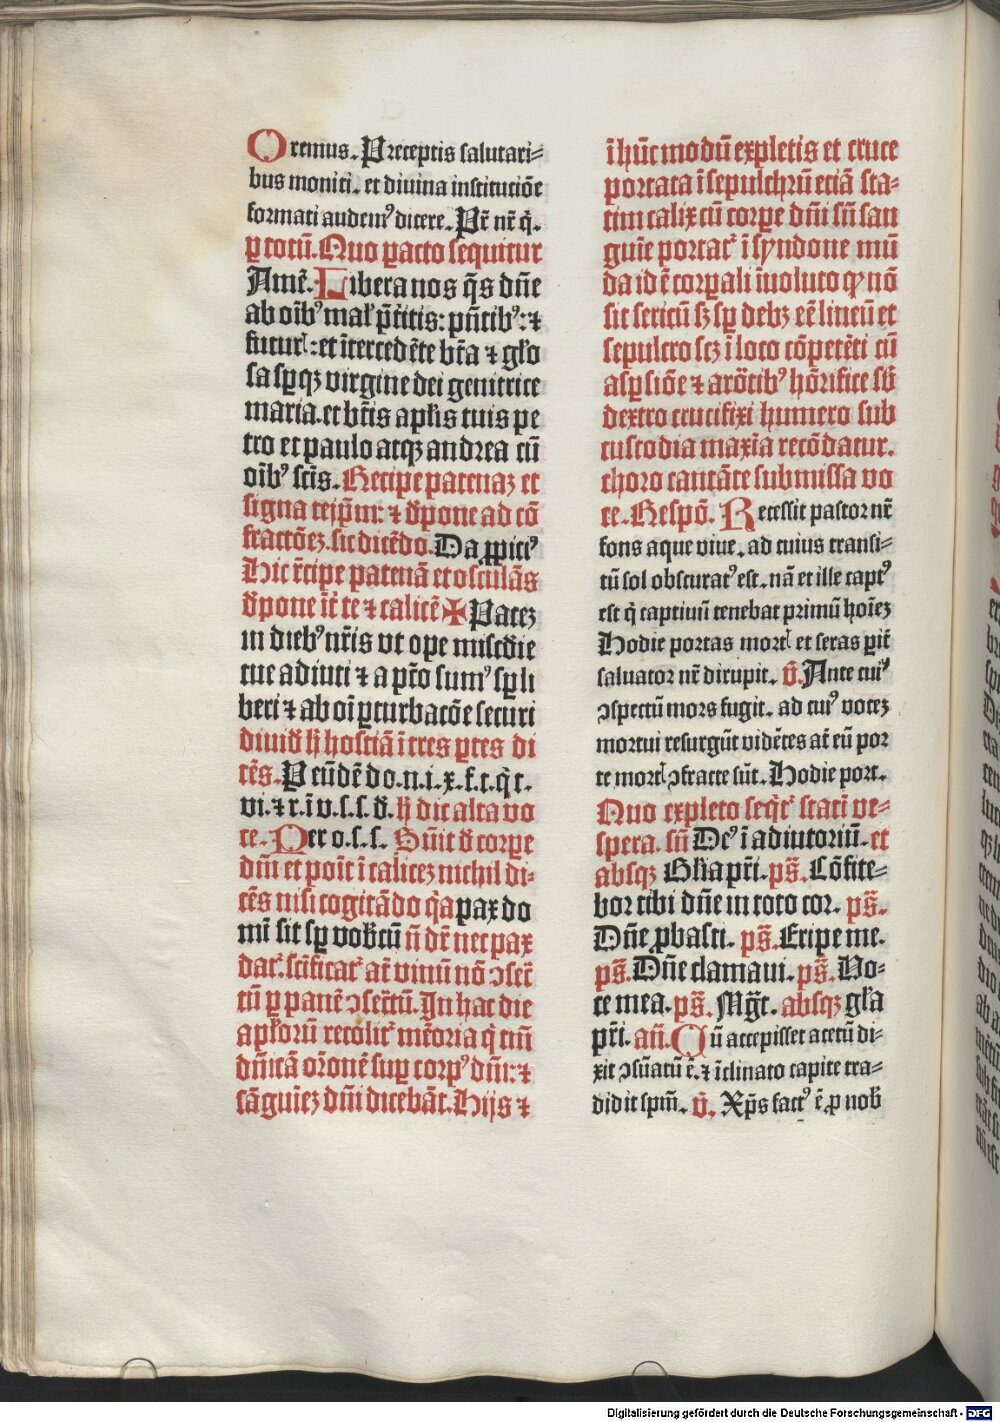 Oremus. Preceptis salutari⸗
bus moniti. et diuina instituciōe
formati audemꝰ dicere. Pr̄ nr̄ q̄.
ꝑ totū. Quo pacto sequitur
Amē. Libera nos q̄s dn̄e
ab oībꝰ mal' p̄t̄itis: pn̄tibꝰ: ⁊
futur̄: et ītercedēte bt̄a ⁊ gl'o
sa sp̱qꝫ virgine dei genitrice
maria. et bt̄is apl'is tuis pe
tro et paulo atqꝫ andrea cū
oībꝰ sc̄is. Recipe patenaꝫ et
signa teip̄m: ⁊ d̄pone ad cō
fractōeꝫ. sic dicēdo. Da ꝓpiciꝰ
Hic r̄cipe patenā et osculās
d̄pone īt̄ te ⁊ calicē ✠ Paceꝫ
in diebꝰ nr̄is vt ope misc̄die
tue adiuti ⁊ a pc̄to simꝰ sp̱ li
beri ⁊ ab oī ꝑturbacōe securi
diuid' h̄ hostiā ī tres ꝑtes di
cēs. P eūdē do. n. i. x. f. t. q̄ t.
vi. ⁊ r. ī v. s. s. d'. h̄ dic alta vo
ce. Per o. s. s. Sūit d' corpe
dn̄i et poīt ī caliceꝫ nichil di⸗
cēs nisi cogitādo q̄a pax do
mī sit sp̱ vob'cū n̄ dr̄ nec pax
dat᷑. sc̄ificat᷑ at̄ vinū nō ↄsec̄
tū ꝑ panē ↄsec̄tū. In hac die
apl'orū recolit᷑ mēoria q̄ cū
dn̄icā or̄onē sup̱ corpꝰ dn̄i: ⁊
sāguīeꝫ dn̄i dicebāt. Hijs ⁊
ī hūc modū expletis et cruce
portata ī sepulchrū eciā sta⸗
tim calix cū corꝑe dn̄i sn̄ san
guīe portat᷑ ī syndone mū
da idē corꝑali īuoluto qꝫ nō
sit sericū sꝫ sp̱ debꝫ eē lineū et
sepulcro scꝫ ī loco cōpetēti cū
asꝑsiōe ⁊ arōtibꝰ hōrifice sb'
dextro crucifixi humero sub
custodia maxīa recōdatur.
choro cantāte submissa vo
ce. Respō. Recessit pastor nr̄
fons aque viue. ad cuius transi⸗
tū sol obscuratꝰ est. nā et ille captꝰ
est q̄ captiuū tenebat primū hoīeꝫ
Hodie portas mort᷑ et seras pit̄
saluator nr̄ dirupit. V̄. Ante cuiꝰ
ↄspectū mors fugit. ad cuiꝰ voceꝫ
mortui resurgūt vidētes at̄ eū por
te mort᷑ ↄfracte sūt. Hodie port.
Quo expleto seq̄t᷑ stati ve⸗
spera. sn̄ De' ī adiutoriū. et
absqꝫ Gl'ia pr̄i. pś. Cōfite⸗
bor tibi dn̄e in toto cor. pś.
Dn̄e ꝓbasti. pś. Eripe me.
pś. Dn̄e clamaui. pś. Vo⸗
ce mea. pś. Mḡt. absqꝫ gl'a
pr̄i. an̄. Cū accepisset acetū di⸗
xit ↄsūatū ē. ⁊ īclinato capite tra⸗
didit sp̄m. V̄. Xp̄s factꝰ ē ꝓ nob'
Digitalisierung gefördert durch die Deutsche Forschungsgemeinschaft - DFG